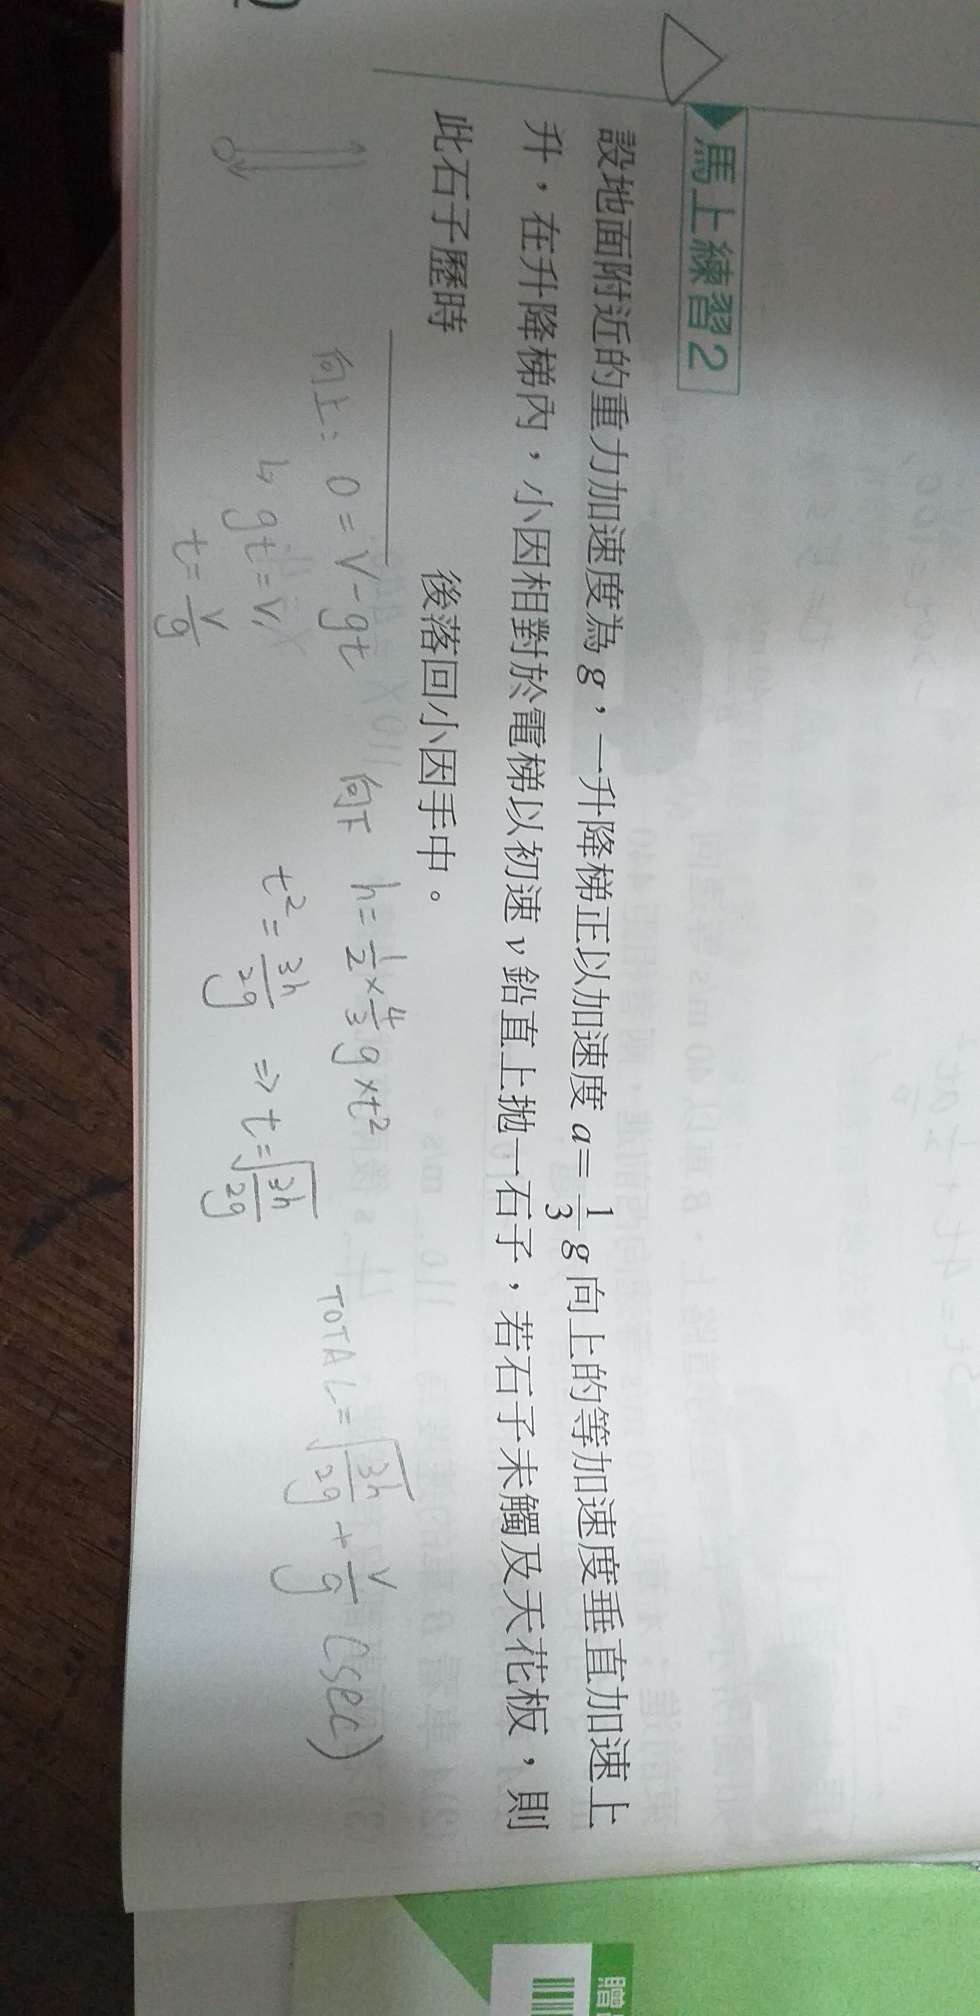 馬上練習2
設地面附近的重力加速度為g，一升降梯正以加速度a=1/3 g向上的等加速度垂直加速上
升，在升降梯內，小因相對於電梯以初速v鉛直上拋一石子，若石子未觸及天花板，則
此石子歷時＿＿＿＿後落回小因手中。
向上: 0=V-gt
↳ gt=V,
t=V/g
向下 h=1/2×4/3g×t²
t²=3h/2g ⇒ t=√(3h/2g)
TOTAL=√(3h/2g)+V/g (sec)
贈